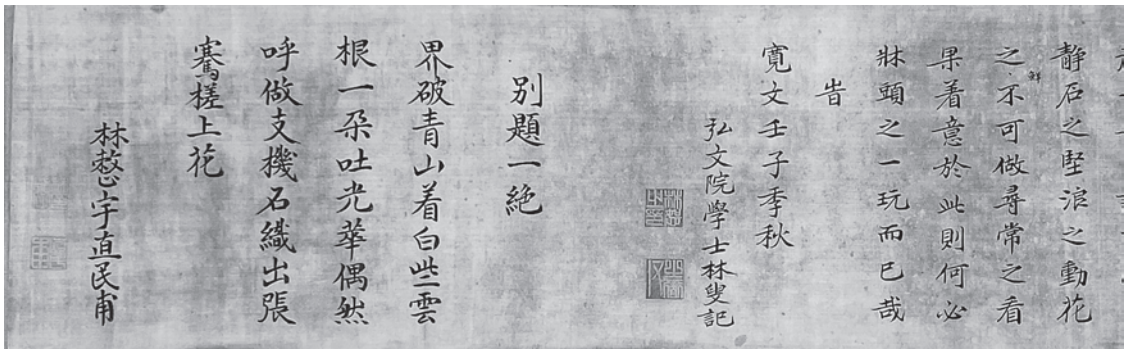 静石之堅浪之動花
之鮮不可做尋常之看
果着意於此則何必
牀頭之一玩而已哉
旹
寛文壬子季秋
弘文院學士林叟記
別題一絶
界破青山着白些雲
根一朶吐光華偶然
呼做支機石織出張
騫槎上花
林憗宇直民甫